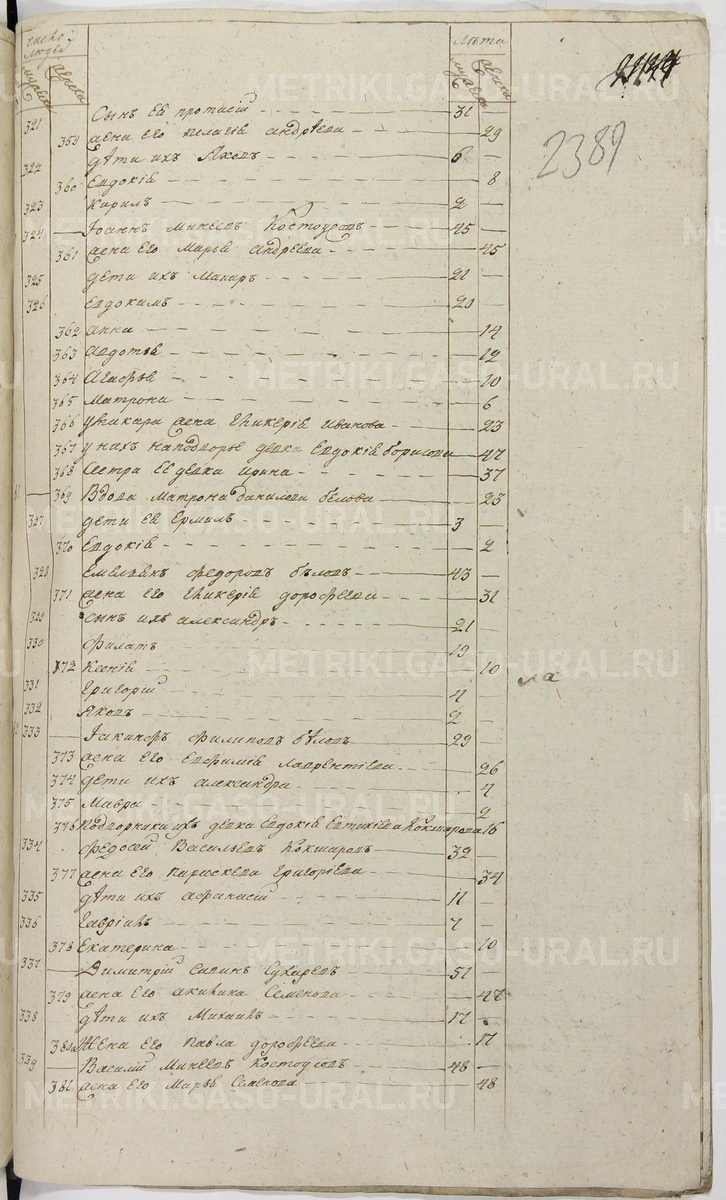 Число людей Лѣта
мужеска женска мужеска женска
2389
321 Сынъ Ея протасий 31
359 жена Его пелагия андрѣева 29
322 дѣти ихъ Яковъ 6
360 Евдокия 8
323 Кирилъ 2
324 Іоаннъ Минеевъ Костоусовъ 45
361 жена Его Марья андреева 45
325 дети ихъ Макаръ 21
326 Евдокимъ 20
362 анна 14
363 авдотья 12
364 Агафья 10
365 Матрона 6
366 жена Гликерия Иванова 23
367 у нихъ на подворье девка Евдокия борисова 47
368 Сестра Ее девка ирина 37
369 Вдова Матрона данилова белова 23
327 дети Ея Ермилъ 3
370 Евдокия 2
328 Емельянъ федоровъ бѣловъ 43
371 жена Его Гликерия дорофеева 31
329 Сынъ ихъ александръ 21
330 филатъ 19
372 Ксения 10
331 Григорий 4
332 Яковъ 2
333 Іакинфъ филиповъ бѣловъ 29
373 жена Его Евфимия лаврентиева 26
374 дети ихъ александра 4
375 Мавра 2
376 Подворники ихъ девка Евдокия Евтихиева Кокшарова 16
334 федосей Васильевъ Кокшаровъ 32
377 жена Его Парискева Григориева 34
335 дѣти ихъ афанасий 11
336 Гавриилъ 7
378 Екатерина 10
337 Димитрий Савинъ Сухаревъ 51
379 жена Его акилина Семенова 47
338 дѣти ихъ Михаилъ 17
380 Жена Его Павла дорофеева 17
339 Василий Минеевъ Костоусовъ 48
381 жена Его Марья Семенова 48
ла
METRIKI.GASO-URAL.RU